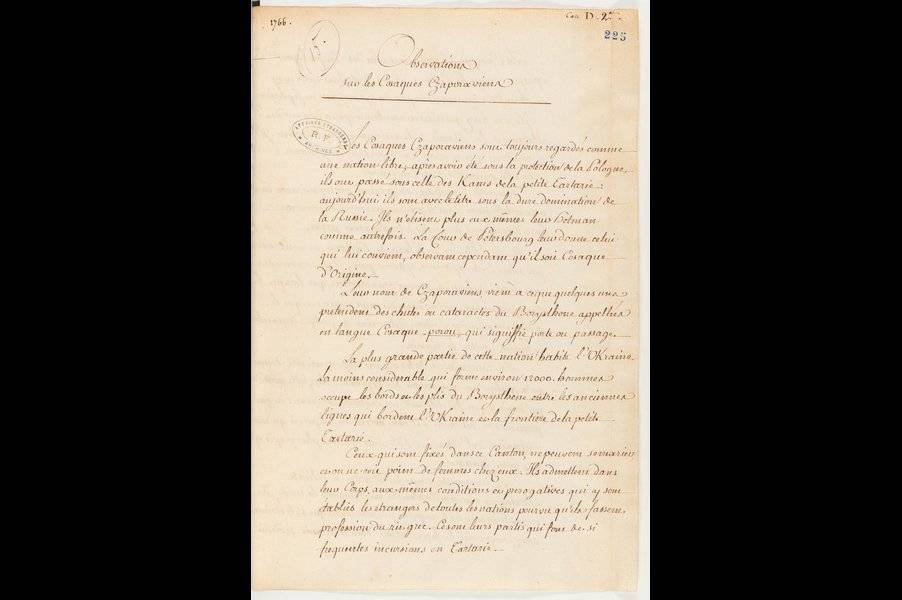 1766.
Con. D. 2.
225
15.
Observations
sur les Cosaques Czaporaviens
ARCHIVES ETRANGERES
R. F.
Les Cosaques Czaporaviens sont toujours regardés comme
une nation libre, après avoir été sous la protection de la Pologne,
ils ont passé sous celle des Kams de la petite Tartarie:
aujourd'hui ils sont avec le titre sous la dure domination de
la Russie. Ils n'elisent plus eux mêmes leur Hetman
comme autrefois. La Cour de Petersbourg leur donne celui
qui lui convient, observant cependant qu'il soit Cosaque
d'Origine.
Leur nom de Czaporaviens vient a ce que quelques uns
pretendent des chutes ou cataractes du Borysthene appellées
en langue Cosaque porou, qui signiffie porte ou passage.
La plus grande partie de cette nation habite l'UKraine
La moins considerable qui forme environ 12000. hommes
occupe les bords et les plis du Borysthene entre les anciennes
lignes qui bordent l'UKraine et la frontiere de la petite
Tartarie.
Ceux qui sont fixés dans ce Canton, ne peuvent se marier
et on ne voit point de femmes chez eux. Ils admettent dans
leur Corps, aux mêmes conditions et prerogatives qui y sont
établies les etrangers de toutes les nations pourvu qu'ils fassent
profession du rit grec. Ce sont leurs partis qui font de si
frequentes incursions en Tartarie.